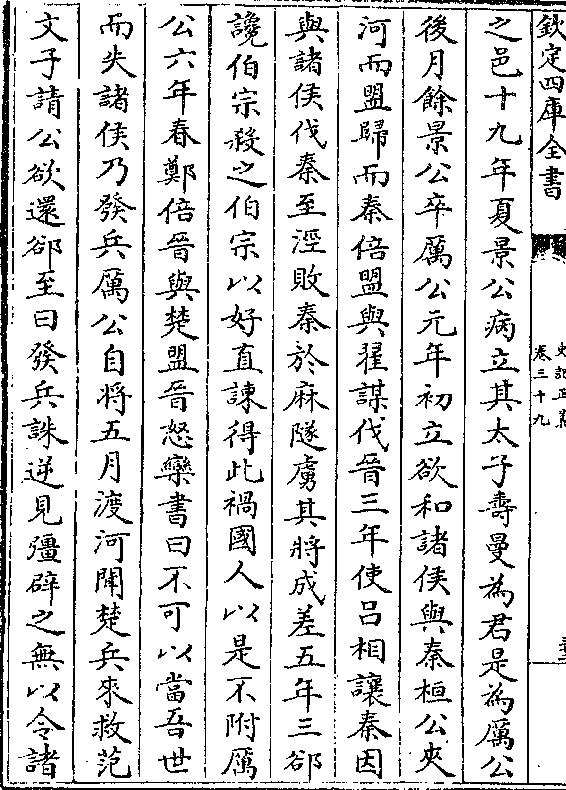 欽定四庫全書
史記正義
卷三十九
之邑十九年夏景公病立其太子壽曼為君是為厲公
後月餘景公卒厲公元年初立欲和諸侯與秦桓公夾
河而盟歸而秦倍盟與翟謀伐晉三年使吕相讓秦因
與諸侯伐秦至涇敗秦於麻隧虜其將成差五年三郤
讒伯宗殺之伯宗以好直諫得此禍國人以是不附厲
公六年春鄭倍晉與楚盟晉怒欒書曰不可以當吾世
而失諸侯乃發兵厲公自將五月渡河聞楚兵來救范
文子請公欲還郤至曰發兵誅逆見彊辟之無以令諸